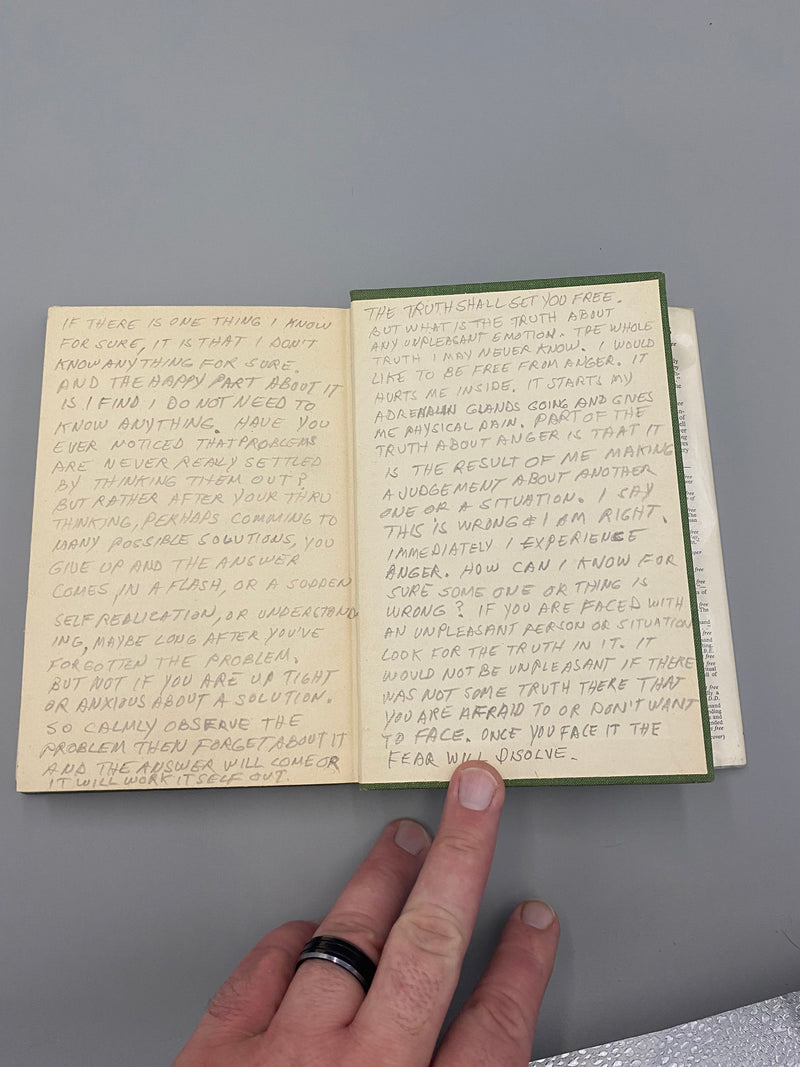 IF THERE IS ONE THING I KNOW
FOR SURE, IT IS THAT I DON'T
KNOW ANYTHING FOR SURE.
AND THE HAPPY PART ABOUT IT
IS I FIND I DO NOT NEED TO
KNOW ANYTHING. HAVE YOU
EVER NOTICED THAT PROBLEMS
ARE NEVER REALLY SETTLED
BY THINKING THEM OUT?
BUT RATHER AFTER YOUR THRU
THINKING, PERHAPS COMMING TO
MANY POSSIBLE SOLUTIONS, YOU
GIVE UP AND THE ANSWER
COMES, IN A FLASH, OR A SUDDEN
SELF REALICATION, OR UNDERSTAND
ING, MAYBE LONG AFTER YOU'VE
FORGOTTEN THE PROBLEM.
BUT NOT IF YOU ARE UP TIGHT
OR ANXIOUS ABOUT A SOLUTION.
SO CALMLY OBSERVE THE
PROBLEM THEN FORGET ABOUT IT
AND THE ANSWER WILL COME OR
IT WILL WORK ITSELF OUT.
THE TRUTH SHALL SET YOU FREE.
BUT WHAT IS THE TRUTH ABOUT
ANY UNPLEASANT EMOTION. THE WHOLE
TRUTH I MAY NEVER KNOW. I WOULD
LIKE TO BE FREE FROM ANGER. IT
HURTS ME INSIDE. IT STARTS MY
ADRENALIN GLANDS GOING AND GIVES
ME PHYSICAL PAIN. PART OF THE
TRUTH ABOUT ANGER IS THAT IT
IS THE RESULT OF ME MAKING
A JUDGEMENT ABOUT ANOTHER
ONE OR A SITUATION. I SAY
THIS IS WRONG & I AM RIGHT.
IMMEDIATELY I EXPERIENSE
ANGER. HOW CAN I KNOW FOR
SURE SOME ONE OR THING IS
WRONG? IF YOU ARE FACED WITH
AN UNPLEASANT PERSON OR SITUATION
LOOK FOR THE TRUTH IN IT. IT
WOULD NOT BE UNPLEASANT IF THERE
WAS NOT SOME TRUTH THERE THAT
YOU ARE AFRAID TO OR DON'T WANT
TO FACE. ONCE YOU FACE IT THE
FEAR WILL DISOLVE.